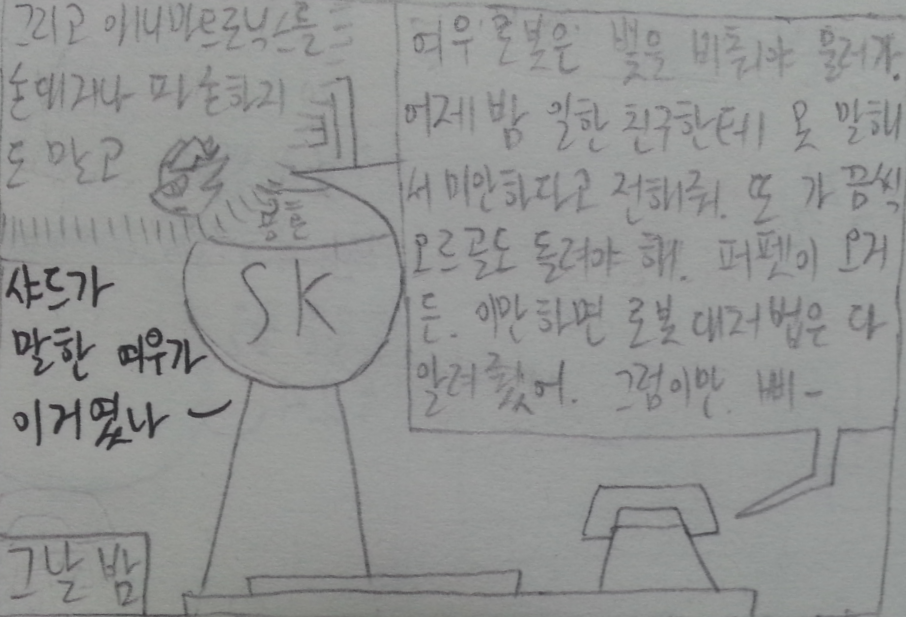 그리고 애니마트로닉스를
손대거나 파손하지
도 말고
몽근
SK
샤드가
말한 여우가
이거였나
그날 밤
여우 로봇은 빛을 비춰야 물러가.
어제 밤 일한 친구한테 못 말해
서 미안하다고 전해줘. 또 가끔씩
오르골도 돌려야 해. 퍼펫이 오거
든. 이만하면 로봇 대처법은 다
알려줬어. 그럼이만. 삐-